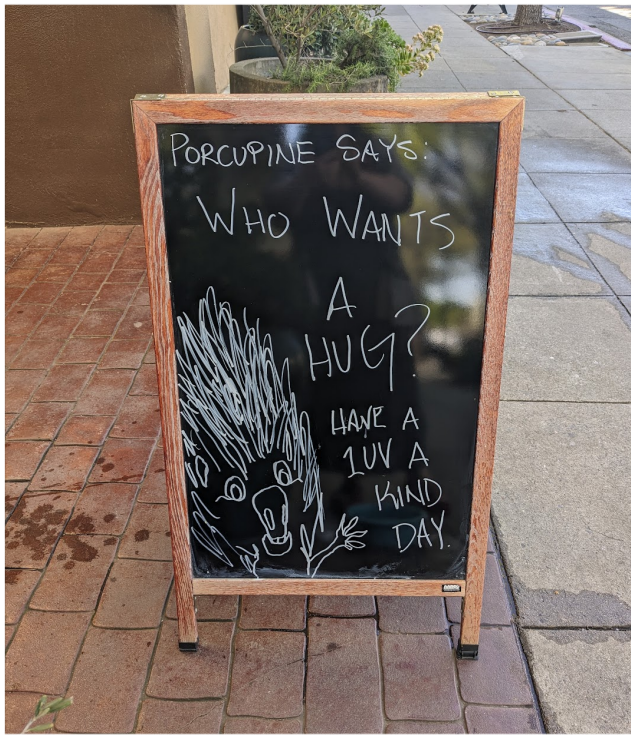 PORCUPINE SAYS:
WHO WANTS
A
HUG?
HAVE A
1UV A
KIND
DAY.